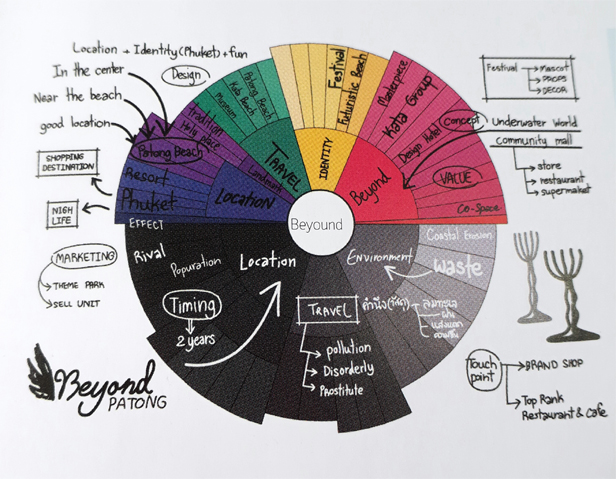 Location + Identity (Phuket) + fun
In the center
Design
Near the beach
good location
SHOPPING
DESTINATION
NIGH
LIFE
MARKETING
THEME PARK
SELL UNIT
Festival
Mascot
PROPS
DECOR
Concept
Underwater World
community mall
store
restaurant
supermaket
VALUE
Co-Space
Resort
Phuket
Patong Beach
LOCATION
Landmark
Tradition
Holy place
Museum
Kata Beach
Patong Beach
TRAVEL
Festival
Futuristic Beach
IDENTITY
Masterpiece
Kata Group
Design Hotel
Beyond
Beyound
EFFECT
Rival
Popuration
Location
Timing
2 years
TRAVEL
pollution
Disorderly
Prostitute
Environment
Coastal Erosion
waste
ลมทะเล
ฝน
แสงแดด
Touch
point
BRAND SHOP
Top Rank
Restaurant & Cafe
Beyond
PATONG